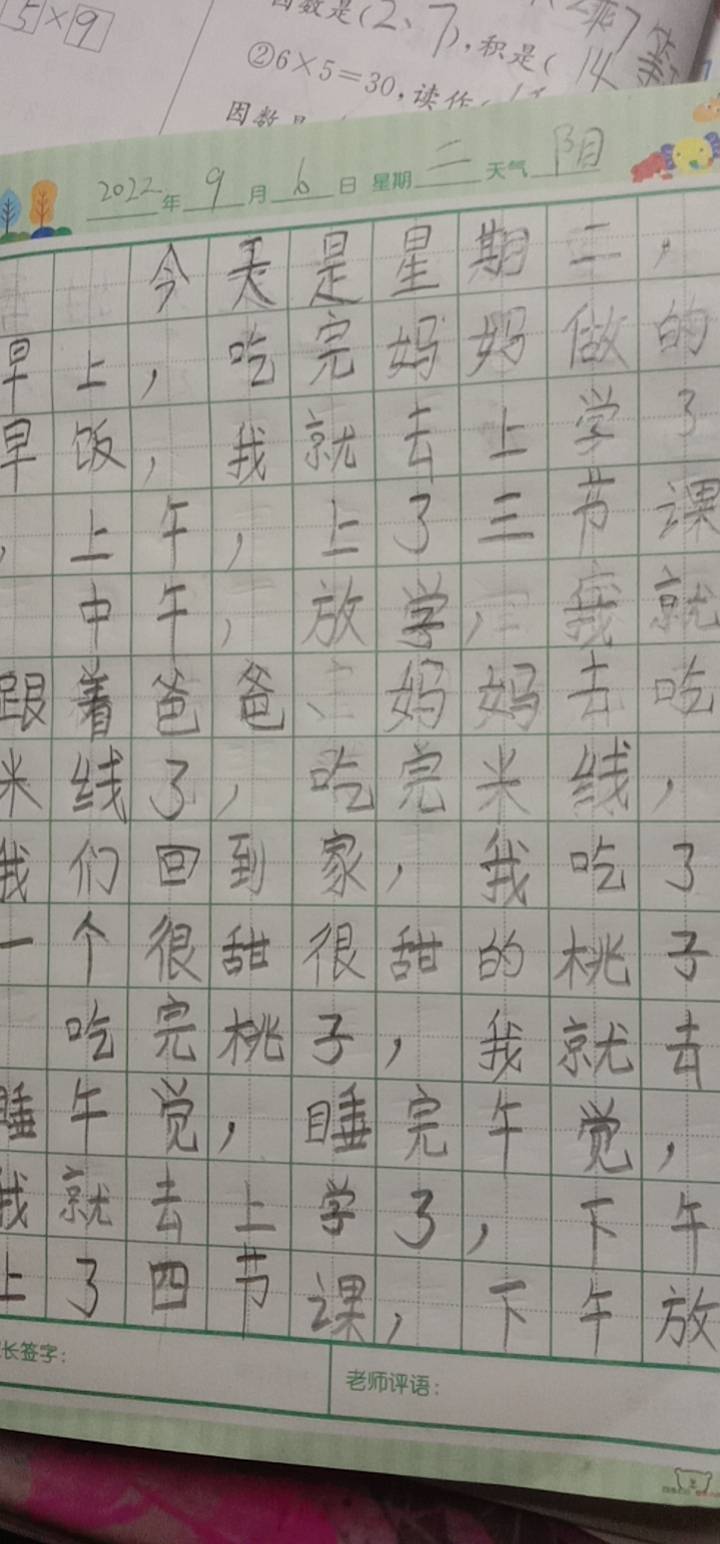 5×9
因数是(2、7),积是(14
②6×5=30,读作
因数是
2022年9月6日 星期二 天气阴
今天是星期二,
早上,吃完妈妈做的
早饭,我就去上学了
,上午,上了三节课
中午,放学,我就
跟着爸爸、妈妈去吃
米线了,吃完米线,
我们回到家,我吃了
一个很甜很甜的桃子
吃完桃子,我就去
睡午觉,睡完午觉,
我就去上学了,下午
上了四节课,下午放
长签字:
老师评语: